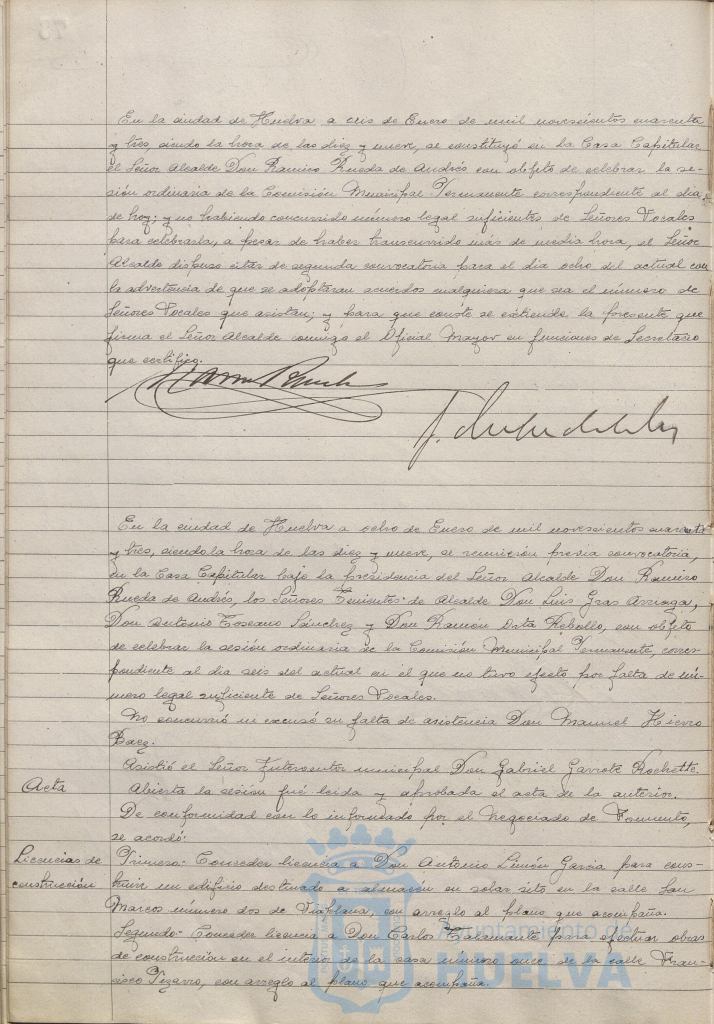 En la ciudad de Huelva a seis de Enero de mil novescientos cuarenta
y tres, siendo la hora de las diez y nueve, se constituyó en la Casa Capitular
el Señor Alcalde Don Ramiro Rueda de Andrés con objeto de celebrar la se-
sión ordinaria de la Comisión Municipal Permanente correspondiente al dia
de hoy; y no habiendo concurrido número legal suficiente, de Señores Vocales
para celebrarla, a pesar de haber transcurrido más de media hora, el Señor
Alcalde dispuso citar de segunda convocatoria para el dia ocho del actual con
la advertencia de que se adoptaran acuerdos cualquiera que sea el número de
Señores Vocales que asistan; y para que conste se extiende la presente que
firma el Señor Alcalde conmigo el Oficial Mayor en funciones de Secretario
que certifico.
En la ciudad de Huelva a ocho de Enero de mil novescientos cuarenta
y tres, siendo la hora de las diez y nueve, se reunieron previa convocatoria,
en la Casa Capitular bajo la presidencia del Señor Alcalde Don Ramiro
Rueda de Andrés, los Señores Tenientes de Alcalde Don Luis Gras Arriaga,
Don Antonio Toscano Sánchez y Don Ramón Orta Rebollo, con objeto
de celebrar la sesión ordinaria de la Comisión Municipal Permanente, corres-
pondiente al dia seis del actual en el que no tuvo efecto por falta de nú-
mero legal suficiente de Señores Vocales.
No concurrió ni excusó su falta de asistencia Don Manuel Hierro
Baez.
Asistió el Señor Interventor municipal Don Gabriel Garrote Rochette.
Acta
Abierta la sesión fué leida y aprobada el acta de la anterior.
De conformidad con lo informado por el Negociado de Fomento,
se acordó:
Licencias de
construcción
Primero- Conceder licencia a Don Antonio Limón Garcia para cons-
truir un edificio destinado a almacén en solar sito en la calle San
Marcos número dos de Viaplana, con arreglo al plano que acompaña.
Segundo- Conceder licencia a Don Carlos para efectuar obras
de construcción en el interior de la casa número once de la calle Fran-
cisco Pizarro, con arreglo al plano que acompaña.
Ayuntamiento de
HUELVA